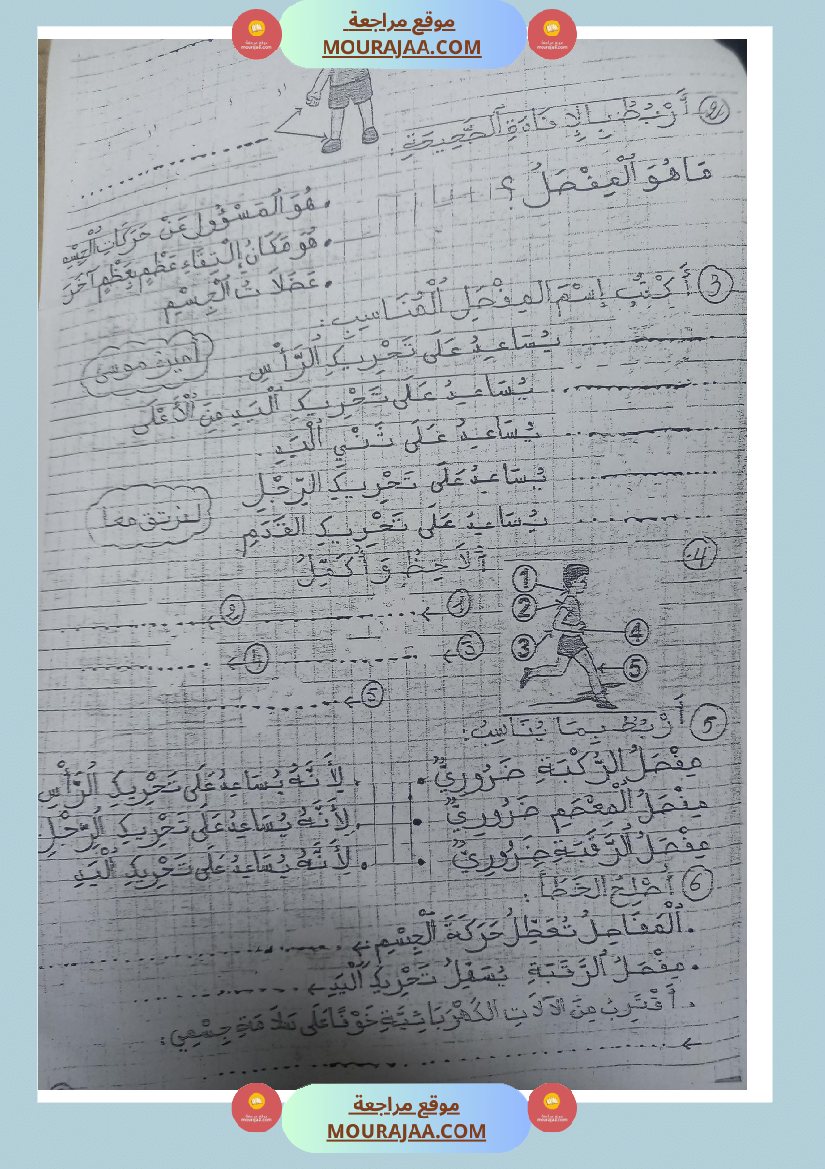 موقع مراجعة
MOURAJAA.COM
② أَرْبُطُ بِالإِفَادَةِ الصَّحِيحَةِ :
مَا هُوَ الْمِفْصَلُ ؟
• هُوَ الْمَسْؤُولُ عَنْ حَرَكَاتِ الْجِسْمِ
• هُوَ مَكَانُ إِلْتِقَاءِ عَظْمٍ بِعَظْمٍ آخَرَ
• عَضَلَاتُ الْجِسْمِ
③ أَكْتُبُ إِسْمَ الْمِفْصَلِ الْمُنَاسِبِ :
......... يُسَاعِدُ عَلَى تَحْرِيكِ الرَّأْسِ
......... يُسَاعِدُ عَلَى تَحْرِيكِ الْيَدِ مِنَ الْأَعْلَى
......... يُسَاعِدُ عَلَى ثَنْيِ الْيَدِ .
......... يُسَاعِدُ عَلَى تَحْرِيكِ الرِّجْلِ
......... يُسَاعِدُ عَلَى تَحْرِيكِ الْقَدَمِ
لنرتق معا
④ أُلَاحِظُ وَأُكَمِّلُ
① ② ③ ④ ⑤
① ← ......... ② ← .........
③ ← ......... ④ ← .........
⑤ ← .........
⑤ أَرْبُطُ بِمَا يُنَاسِبُ :
مِفْصَلُ الرُّكْبَةِ ضَرُورِيٌّ • • لِأَنَّهُ يُسَاعِدُ عَلَى تَحْرِيكِ الرَّأْسِ
مِفْصَلُ الْمِعْصَمِ ضَرُورِيٌّ • • لِأَنَّهُ يُسَاعِدُ عَلَى تَحْرِيكِ الرِّجْلِ
مِفْصَلُ الرَّقَبَةِ ضَرُورِيٌّ • • لِأَنَّهُ يُسَاعِدُ عَلَى تَحْرِيكِ الْيَدِ
⑥ أُصْلِحُ الخَطَأَ :
• الْمَفَاصِلُ تُعَطِّلُ حَرَكَةَ الْجِسْمِ ← .........
• مِفْصَلُ الرَّقَبَةِ يُسَهِّلُ تَحْرِيكَ الْيَدِ ← .........
• أَقْتَرِبُ مِنَ الآلَاتِ الكَهْرَبَائِيَّةِ خَوْفًا عَلَى سَلَامَةِ جِسْمِي :
← .........
موقع مراجعة
MOURAJAA.COM